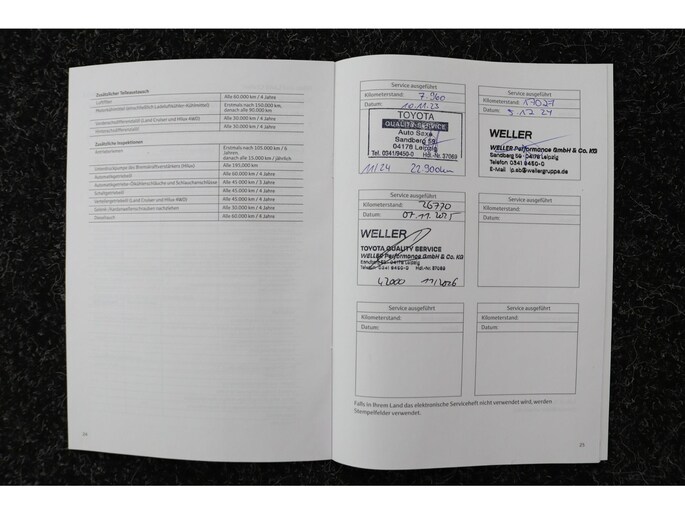 Zusätzlicher Teileaustausch
Luftfilter Alle 60.000 km / 4 Jahre
Erstmals nach 150.000 km,
danach alle 90.000 km
Alle 30.000 km / 4 Jahre
Hinterachsdifferenzialöl Alle 30.000 km / 4 Jahre
Zusätzliche Inspektionen
Antriebsriemen Erstmals nach 105.000 km / 6
Jahren,
danach alle 15.000 km / jährlich
Alle 195.000 km
Automatikgetriebeöl Alle 60.000 km / 4 Jahre
Alle 45.000 km / 3 Jahre
Schaltgetriebeöl Alle 45.000 km / 4 Jahre
Alle 45.000 km / 4 Jahre
Alle 30.000 km / 4 Jahre
Alle 60.000 km / 4 Jahre
24
Service ausgeführt
Kilometerstand: 7.960
Datum: 10.11.23
TOYOTA
QUALITY SERVICE
Auto Saxe
Sandberg 59
04178 Leipzig
Tel. 0341/9450-0 Hdl.-Nr. 37069
11/24 22.900km
Service ausgeführt
Kilometerstand: 17027
Datum: 9.12.24
WELLER
WELLER Performance GmbH & Co. KG
Sandberg 59 · 04178 Leipzig
Telefon 0341 9450-0
E-Mail lp.sb@wellergruppe.de
Service ausgeführt
Kilometerstand: 26770
Datum: 07.11.2025
WELLER
TOYOTA QUALITY SERVICE
WELLER Performance GmbH & Co. KG
Sandberg 59 · 04178 Leipzig
Telefon 0341 9450-0 Hdl.-Nr. 37069
42000 11/2026
Service ausgeführt
Kilometerstand:
Datum:
Service ausgeführt
Kilometerstand:
Datum:
Service ausgeführt
Kilometerstand:
Datum:
Falls in Ihrem Land das elektronische Serviceheft nicht verwendet wird, werden
Stempelfelder verwendet.
25